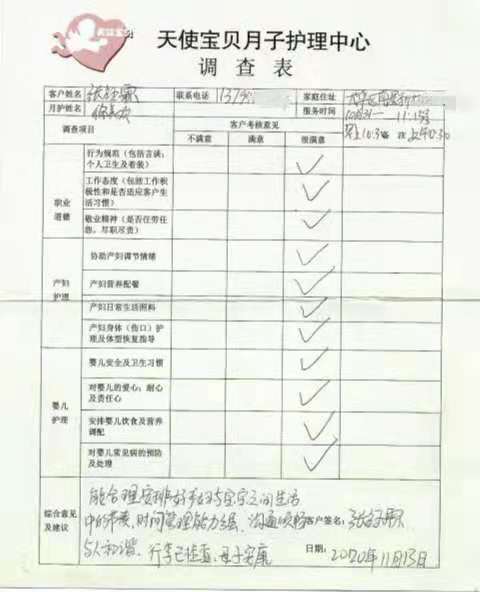 天使宝贝
天使宝贝月子护理中心
调查表
客户姓名 联系电话 家庭住址
月护姓名 服务时间
调查项目 客户考核意见
不满意 满意 很满意
职业道德
行为规范（包括言谈；个人卫生及着装）
工作态度（包括工作积极性和是否适应客户生活习惯）
敬业精神（是否任劳任怨，尽职尽责）
产妇护理
协助产妇调节情绪
产妇营养配餐
产妇日常生活照料
产妇身体（伤口）护理及体型恢复指导
婴儿护理
婴儿安全及卫生习惯
对婴儿的爱心；耐心及责任心
安排婴儿饮食及营养调配
对婴儿常见病的预防及处理
综合意见及建议
能合理安排好和妈与宝宝之间生活
中的节奏，时间管理能力强、沟通顺畅
与人和谐、行李已检查、母子安康
客户签名：
日期： 2020年11月13日